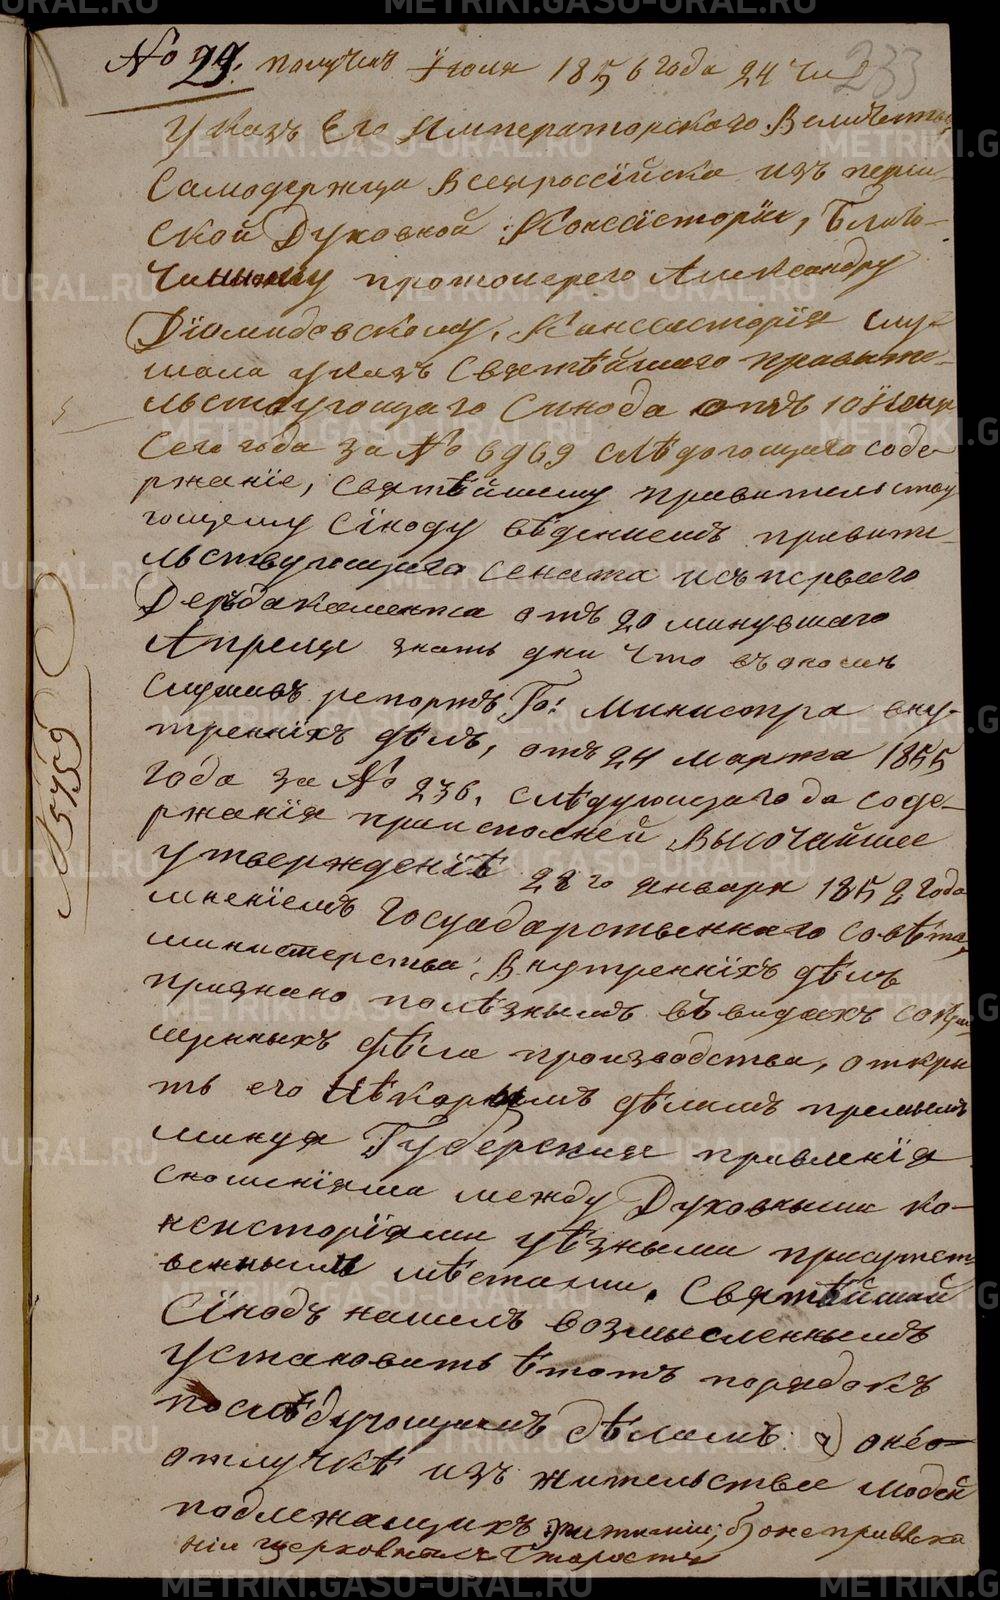 № 29. получен Июля 1856 года 24 чи
233
Указъ Его Императорскаго Величества
Самодержца Всероссійска изъ перм-
ской Духовной Консисторіи, Благо-
чинному протоиерею Александру
Діомидовскому, Консисторія слу-
шала указъ Святѣйшаго правите-
льствующаго Синода отъ 10 Июня
сего года за № 6969 слѣдующаго соде
ржаніе, святѣйшему правительству
ющему Сіноду вѣдениемъ правите-
льствующаго сената изъ перваго
Депбакамента отъ 20 минувшаго
Апреля знать дни что въ ономъ
слушавъ репортъ Го: Министра вну-
треннихъ дѣлъ, отъ 24 марта 1855
года за № 236, слѣдующаго да соде-
ржанія приисполней Высочайшее
утвержденіѣ 28го января 1852 года
мнениемъ Государственнаго совѣта,
министерства, Внутренніхъ дѣлъ
признано полѣзнымъ въ видахъ сокра
щенныхъ дѣла производства, откры
ть его нѣкорымъ дѣламъ премымъ
минуя Губерския правленія
сношеніями между Духовными ко-
нсисторіями уѣзными присутст
венными мѣстами. Святѣйший
Сінодъ нашелъ возмысленнымъ
установить ѣтотъ порядокъ
послѣдующимъ дѣламъ: а) о нео-
отлучкѣ изъ жительства людей
подлежащихъ питимии; б) о не привлека
ніи церковныхъ старостъ
№ 5759